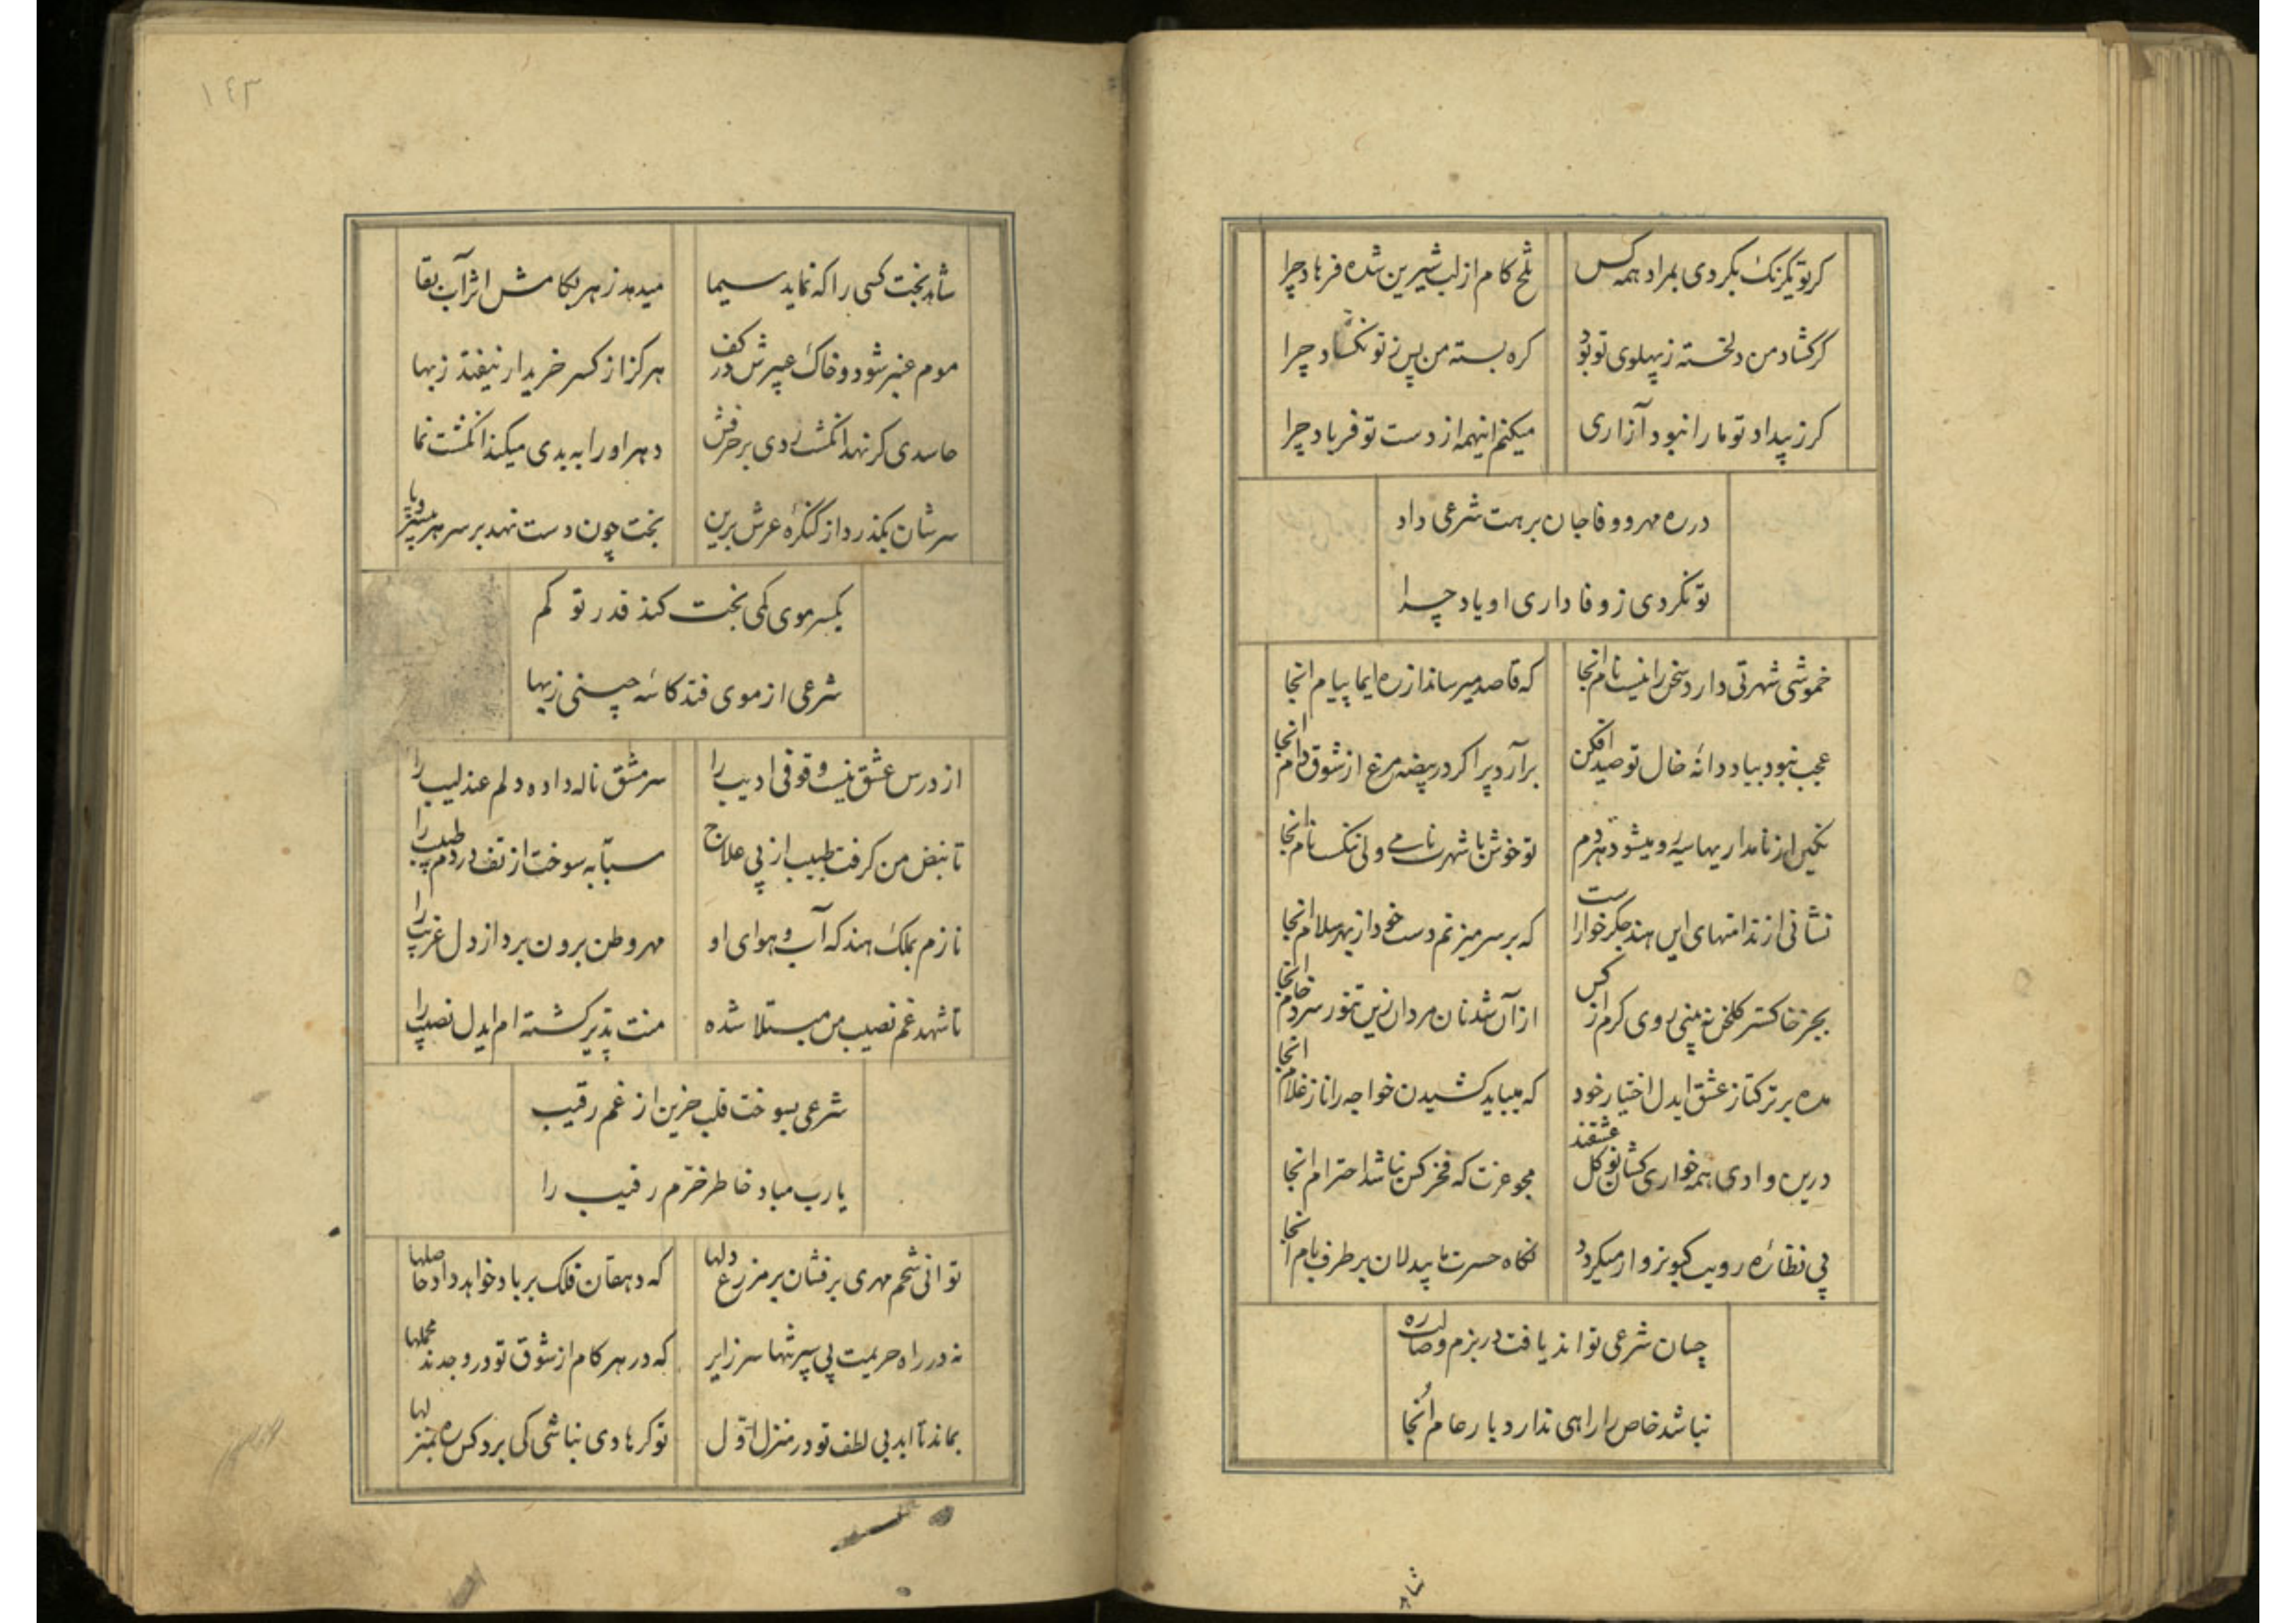 کر تو یکرنک بکردی بمراد همه کس
تلخ کام از لب شیرین شده فرهاد چرا
کر کشاد من دلخسته ز پهلوی تو بود
کره بسته من پس ز تو نکشاد چرا
کر ز بیداد تو ما را نبود آزاری
میکنم اینهمه از دست تو فریاد چرا
در ره مهر و وفا جان برهت شرعی داد
تو نکردی ز وفاداری او یاد چرا
خموشی شهرتی دارد سخن را نیست نام انجا
که قاصد میرساند از ره ایما پیام انجا
عجب نبود بیاد دانهٔ خال تو صید افکن
برآرد پر اکر در بیضه مرغ از شوق دام انجا
نکین از نامداریها سیه رو میشود هر دم
تو خوش با شهرت نامی ولی ننکست نام انجا
نشانی از ندامتهای این هند جکرخوارا ست
که بر سر میزنم دست خود از بهر سلام انجا
بجز خاکستر کلخن نه بینی روی کرم از کس
از آن شد نان مردان زین تنور سرد خام انجا
مده بر ترکتاز عشق ایدل اختیار خود
که میباید کشیدن خواجه را ناز غلام انجا
درین وادی همه خواری کشان نوکل عشقند
مجو عزت که فخر کس نباشد احترام انجا
پی نظارهٔ رویت کبوتر وار میکردد
نکاه حسرت ما بیدلان بر طرف بام انجا
چسان شرعی تواند یافت در بزم وصالت ره
نباشد خاص را راهی ندارد بار عام آنجا
شاهد
١٤٣
شاهد بخت کسی را که نماید سیما
میدهد زهر بکامش اثر آب بقا
موم عنبر شود و خاک عبیرش در کف
هرکز از کسر خریدار نیفتد ز بها
حاسدی کر نهد انکشت ردی بر حرفش
دهر او را به بدی میکند انکشت نما
سرشان بکذرد از کنکرهٔ عرش برین
بخت چون دست نهد بر سر هر بیسر و پا
یکسر موی کمی بخت کند قدر تو کم
شرعی از موی فتد کاسهٔ چینی ز بها
از درس عشق نیست وقوفی ادیب را
سر مشق ناله داده دلم عندلیب را
تا نبض من کرفت طبیب از پی علاج
سبابه سوخت از تف دردم طبیب را
نازم بملک هند که آب و هوای او
مهر وطن برون برد از دل غریب را
تا شهد غم نصیب من مبتلا شده
منت پذیر کشته ام ایدل نصیب را
شرعی بسوخت قلب حزین از غم رقیب
یارب مباد خاطر خرم رقیب را
توانی تخم مهری برفشان بر مزرع دلها
که دهقان فلک بر باد خواهد داد حاصلها
نه در راه حریمت پی سپر تنها سر زایر
که در هر کام از شوق تو در وجدند محملها
بماند تا ابد بی لطف تو در منزل اول
تو کر هادی نباشی کی برد کس ره بمنزلها